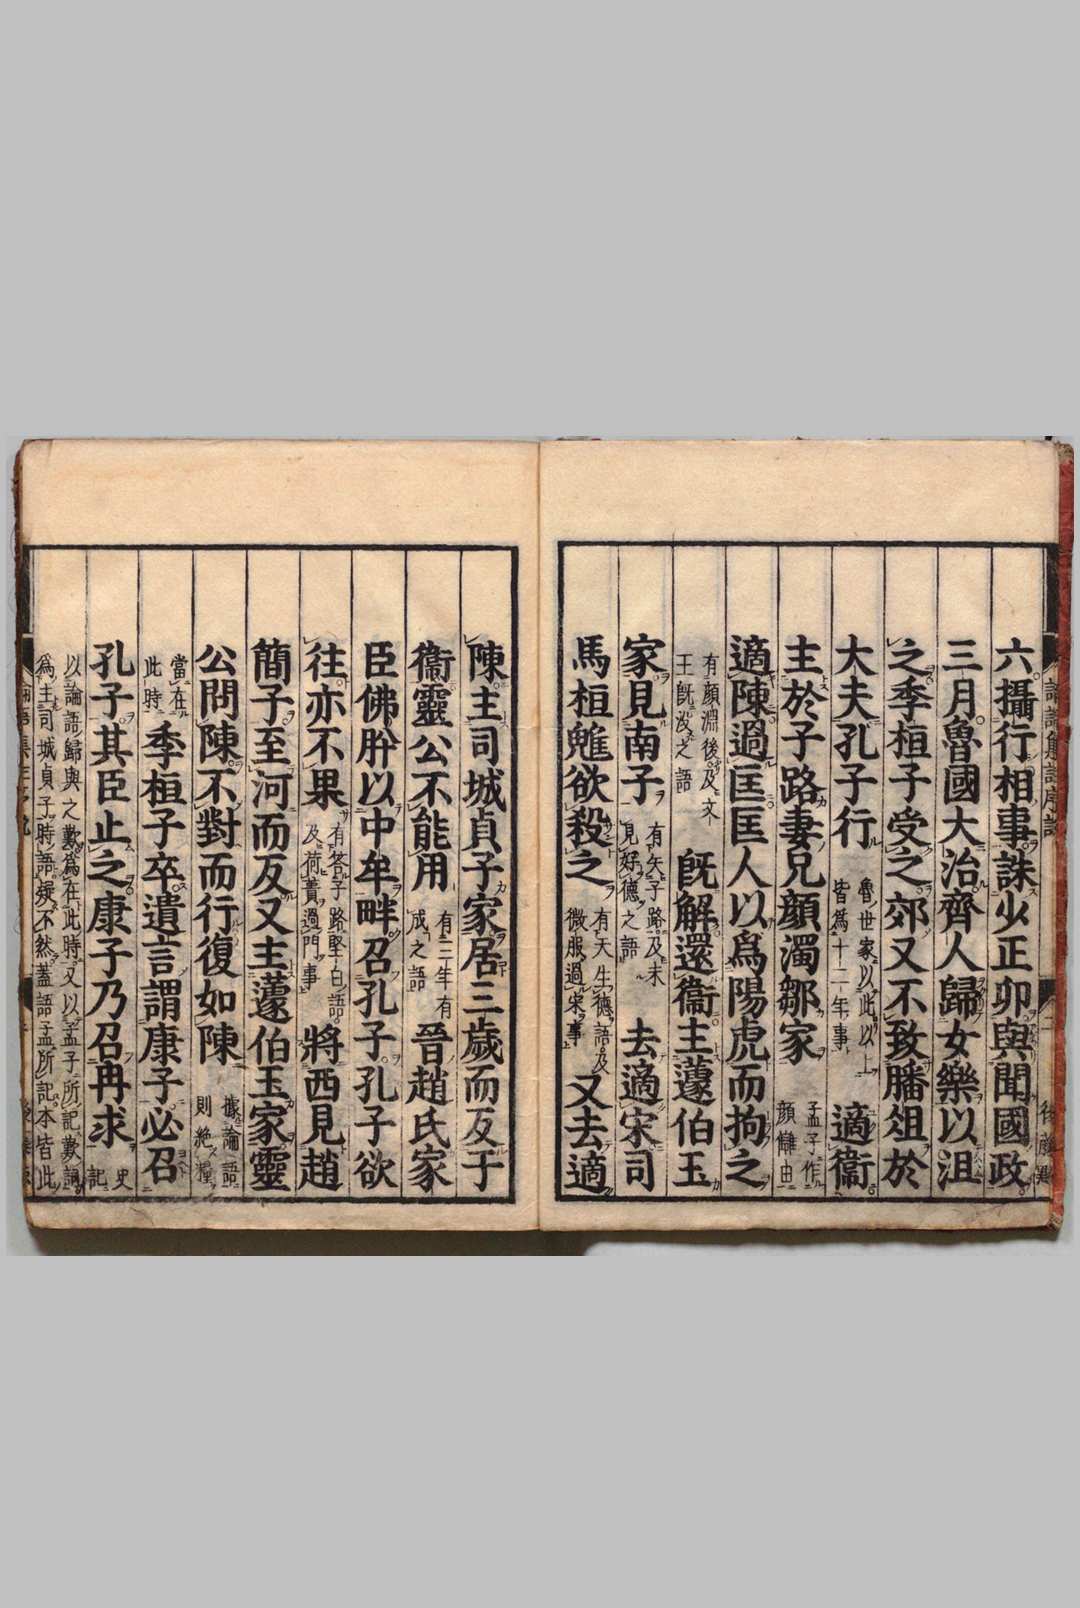 六攝行相事誅少正卯與聞國政
三月魯國大治齊人歸女樂以沮
之季桓子受之郊又不致膰俎於
大夫孔子行 魯世家以此以上皆爲十二年事 適衞
主於子路妻兄顏濁鄒家 孟子作顏讎由
適陳過匡匡人以爲陽虎而拘之
有顏淵後及文王旣沒之語 旣解還衞主蘧伯玉
家見南子 有矢子路及未見好德之語 去適宋司
馬桓魋欲殺之 有天生德語及微服過宋事 又去適
陳主司城貞子家居三歲而反于
衞靈公不能用 有三年有成之語 晉趙氏家
臣佛肸以中牟畔召孔子孔子欲
往亦不果 有答子路堅白語及荷蕢過門事 將西見趙
簡子至河而反又主蘧伯玉家靈
公問陳不對而行復如陳 據論語則絶糧
當在此時 季桓子卒遺言謂康子必召
孔子其臣止之康子乃召冉求 史記
以論語歸與之歎爲在此時又以孟子所記歎詞
爲主司城貞子時語疑不然蓋語孟所記本皆此